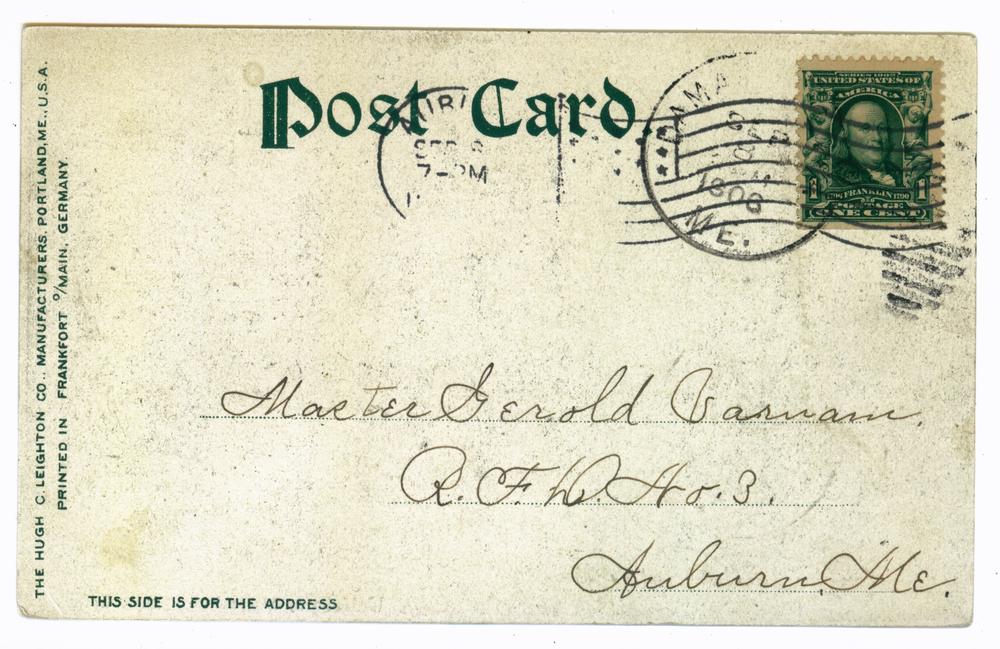 Post Card.
AUBU
SEP 9
7-PM
DAMA
1906
ME.
SERIES 1902
UNITED STATES OF
AMERICA
1 FRANKLIN 1
POSTAGE
ONE CENT
Master Gerold Varnam.
R.F.D. No. 3.
Auburn, Me.
THIS SIDE IS FOR THE ADDRESS
THE HUGH C. LEIGHTON CO., MANUFACTURERS, PORTLAND, ME., U.S.A.
PRINTED IN FRANKFORT º/MAIN, GERMANY